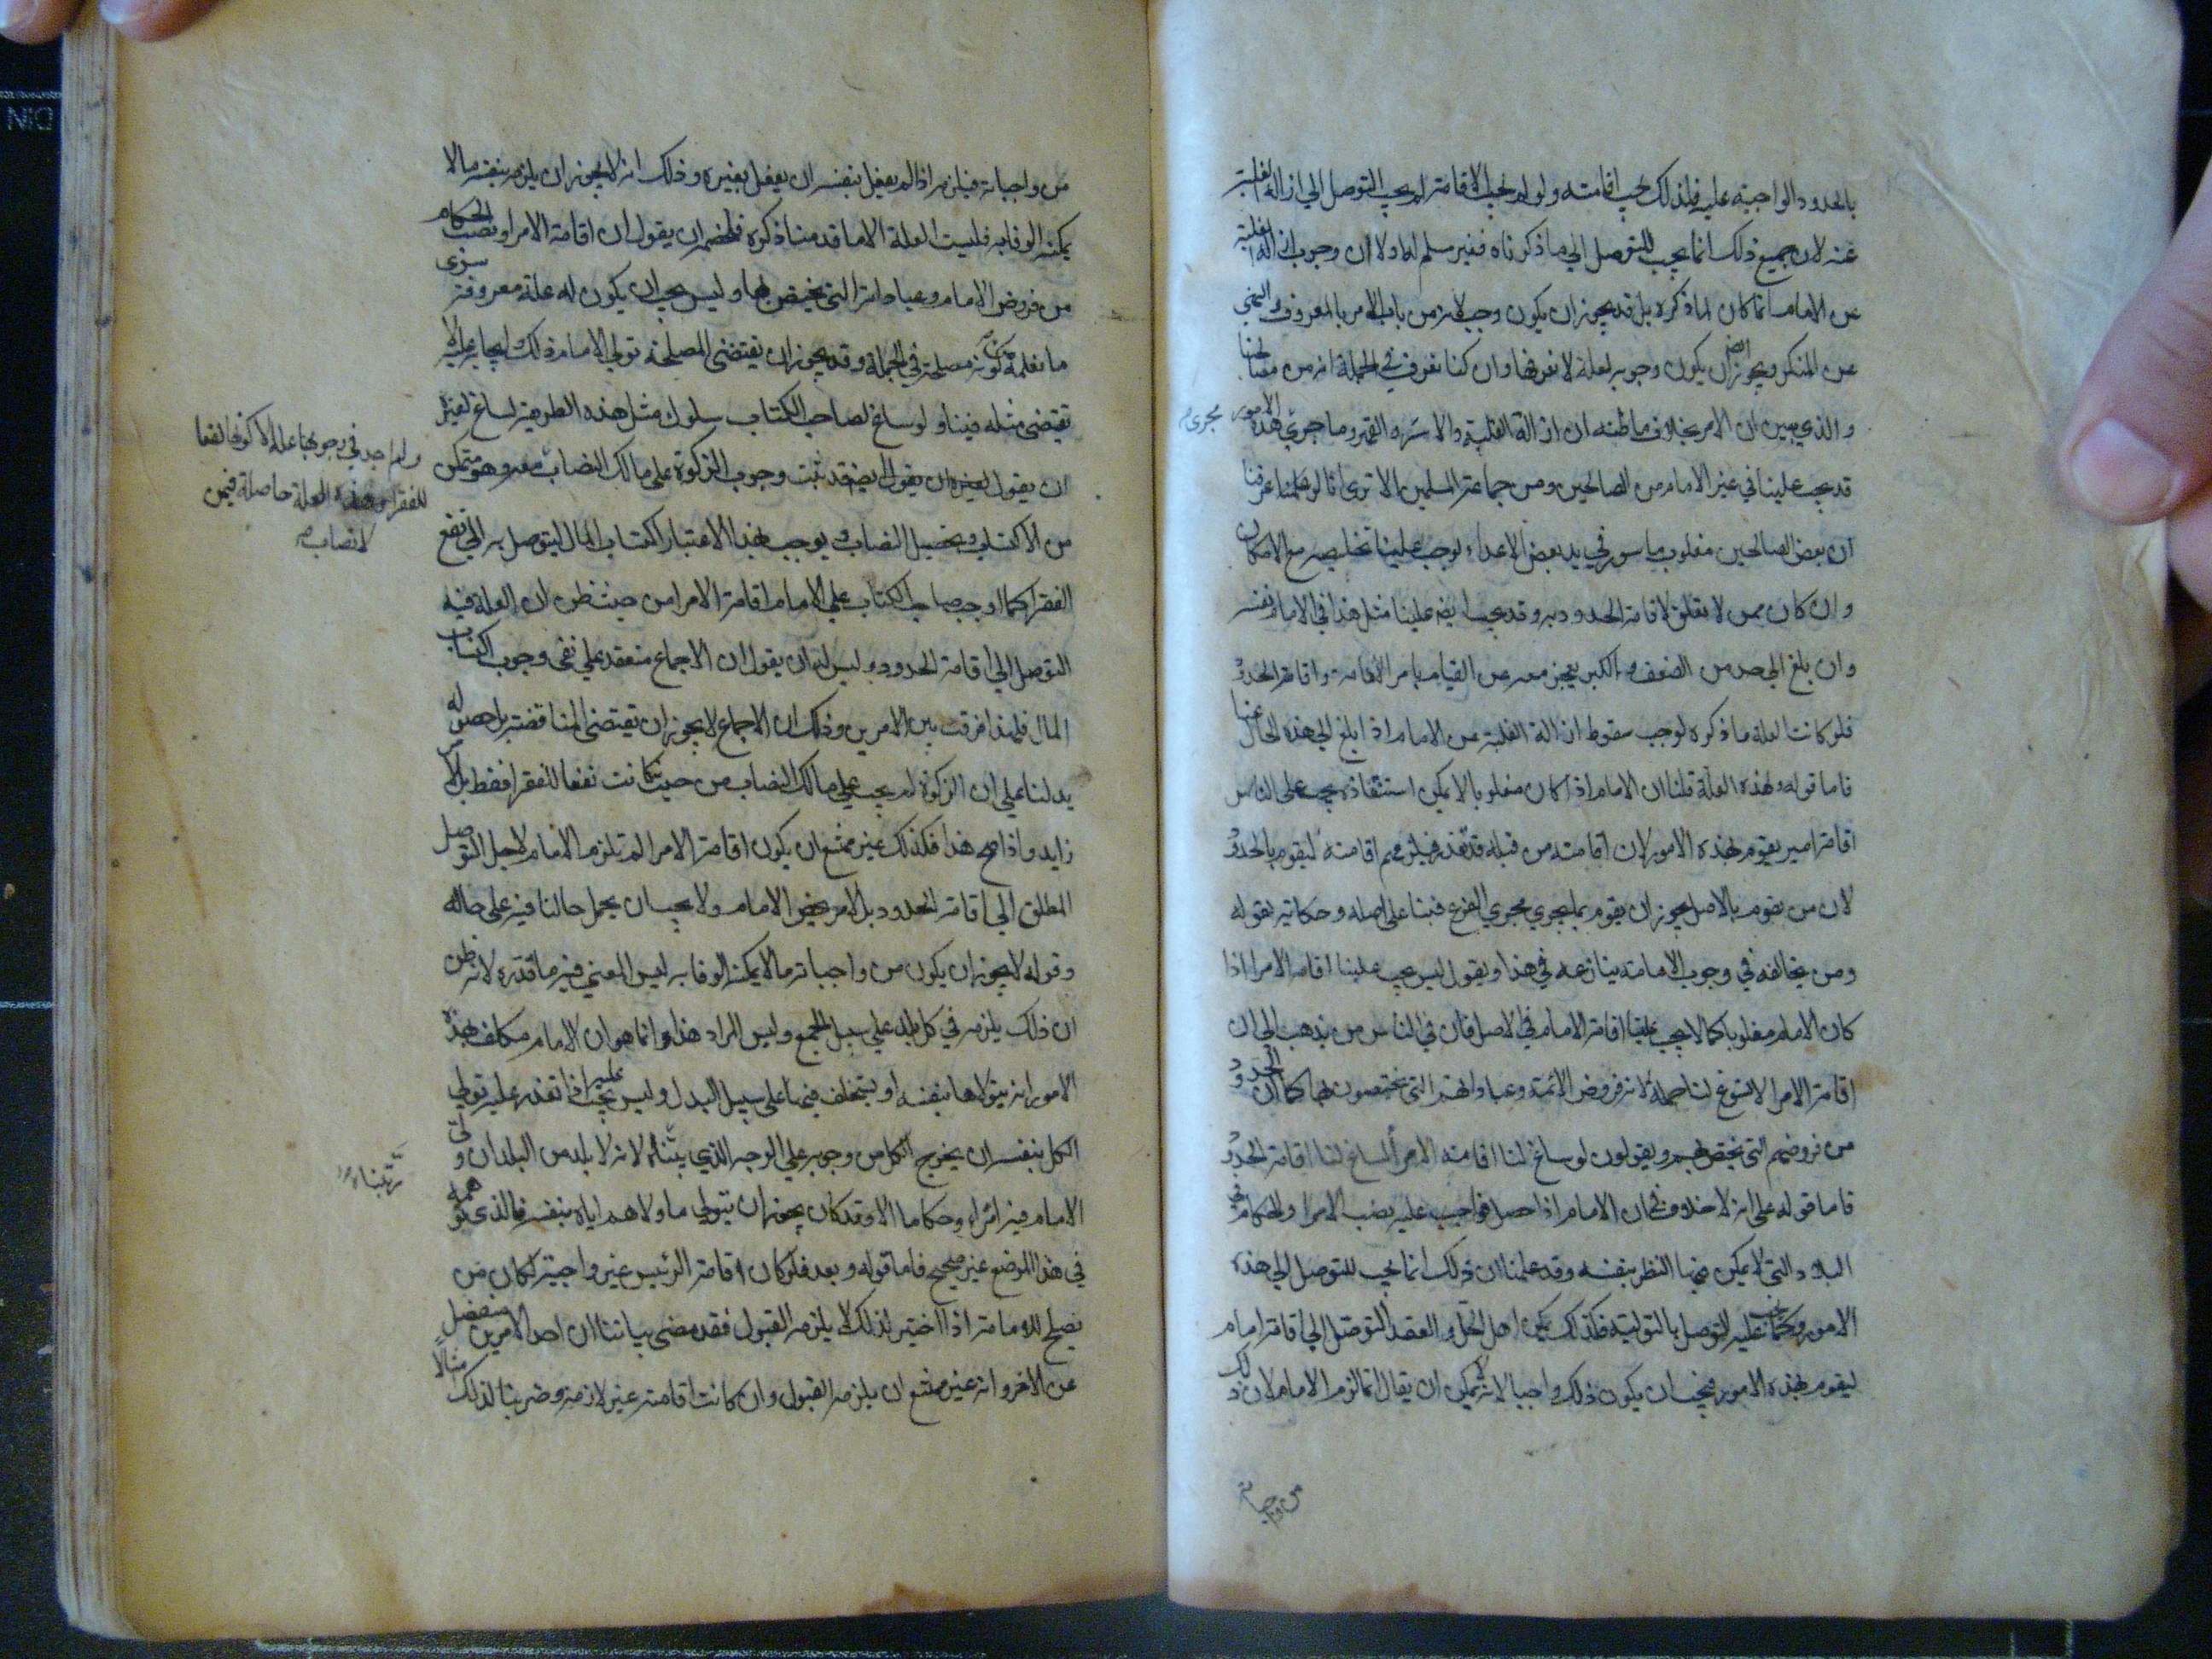 بالحدود الواجبة عليه فلذلك تجب اقامته ولو لم تجب الاقامة لم يجب التوصل الي ازالة الغلبة
عنه لان جميع ذلك انما يجب للتوصل الي ما ذكرناه فغير مسلم له اولا ان وجوب ازالة الغلبة
عن الامام انما كان لما ذكره بل قد يجوز ان يكون وجب لانه من باب الامر بالمعروف والنهي
عن المنكر ويجوز ايضا ان يكون وجوبه لعلة لا نعرفها وان كنا نعرف في الجملة انه من مصالحنا
والذي يبين ان الامر بخلاف ما ظنه ان ازالة الغلبة والاسر والقهر وما جري هذه الامور مجري
قد يجب علينا في غير الامام من الصالحين ومن جماعة المسلمين الا تري انا لو علمنا
ان بعض الصالحين مغلوب ماسور في يد بعض الاعداء لوجب علينا تخليصه مع الامكان
وان كان ممن لا تعلق لاقامة الحدود به وقد يجب ايضا علينا مثل هذا في الامام نفسه
وان بلغ الي حد من الضعف والكبر يعجز معه عن القيام بامر الامامة واقامة الحدود
فلو كانت العلة ما ذكره لوجب سقوط ازالة الغلبة عن الامام اذا بلغ الي هذه الحال عنا
فاما قوله ولهذه العلة قلنا ان الامام اذا كان مغلوبا لا يمكن استنقاذه يجب على الناس
اقامة امير يقوم بهذه الامور لان اقامته من قبله قد تعذر فيلزمهم اقامته ليقوم بالحدود
لان من يقوم بالاصل يجوز ان يقوم بما يجري مجري الفرع فبنا على اصله وحكاية لقوله
ومن يخالفه في وجوب الامامة ينازعه في هذا ويقول ليس يجب علينا اقامة الامرا اذا
كان الامام مغلوبا كما لا يجب علينا اقامة الامام في الاصل فان في الناس من يذهب الي ان
اقامة الامرا لا تسوغ لنا جملة لانه فروض الائمة وعباداتهم التي يختصون بها كما ان الحدود
من فروضهم التي تختص بهم ويقولون لو ساغ لنا اقامة الامرا لساغ لنا اقامة الحدود
فاما قوله على انه لا خلاف في ان الامام اذا حصل فواجب عليه نصب الامرا والحكام في
البلاد التي لا يمكن فيها النظر بنفسه وقد علمنا ان ذلك انما يجب للتوصل الي هذه
الامور وكما يجب عليه التوصل بالتولية فكذلك يمكن اهل الحل والعقد التوصل الي اقامة امام
ليقوم بهذه الامور فيجب ان يكون ذلك واجبا لانه لا يمكن ان يقال انما لزم الامام لان ذلك
من واجباته
من واجباته فيلزمه اذا لم يفعل بنفسه ان يفعل بغيره وذلك انه لا يجوز ان يلزمه بنفسه ما لا
يمكنه الوفا به فليست العلة الا ما قدمنا ذكره فلخصمه ان يقول ان اقامة الامرا ونصب الحكام
من فروض الامام وعباداته التي يختص بها وليس يجب ان يكون له علة معروفة سوى
ما نعلمه من كونه مصلحة في الجملة وقد يجوز ان يقتضي المصلحة تولي الامام ذلك وايجابه عليه ولا
تقتضي مثله فينا ولو ساغ لصاحب الكتاب سلوك مثل هذه الطريقة لساغ لغيره
ان يقول لغيره ان يقول ايضا قد ثبت وجوب الزكوة على مالك النصاب معه وهو متمكن
ولم اجد في وجوبها علة الا كونها نفعا
للفقرا وهذه العلة حاصلة فيمن
لا نصاب معه
من الاكتساب وتحصيل النصاب ويوجب بهذا الاعتبار اكتساب المال ليتوصل به الي نفع
الفقرا كما اوجب صاحب الكتاب على الامام اقامة الامرا من حيث ظن ان العلة فيه
التوصل الي اقامة الحدود وليس له ان يقول ان الاجماع منعقد على نفي وجوب اكتساب
المال فلهذا فرقت بين الامرين وذلك ان الاجماع لا يجوز ان يقتضي المناقضة بل حصوله
يدلنا على ان الزكوة لم يجب على مالك النصاب من حيث كانت نفعا للفقرا فقط بل لامر
زايد واذا صح هذا فكذلك غير ممتنع ان يكون اقامة الامرا لم تلزم الامام لاجل التوصل
المطلق الي اقامة الحدود بل لامر يخص الامام ولا يجب ان يحمل حالنا فيه على حاله
وقوله لا يجوز ان يكون من واجباته ما لا يمكنه الوفا به ليس المعني فيه ما قدره لانه ظن
ان ذلك يلزمه في كل بلد على سبيل الجمع وليس المراد هذا وانما هو ان الامام مكلف بهذه
الامور انه يتولاها بنفسه او يستخلف فيها على سبيل البدل وليس يجب عليه اذا تعذر عليه تولي
الكل بنفسه ان يخرج الكل من وجوبه على الوجه الذي بيناه لانه لا بلد من البلدان ولي
رتبناه
الامام فيه امراء وحكاما الا وقد كان يجوز ان يتولي ما ولاهم اياه بنفسه فالذي توهمه
في هذا الموضع غير صحيح فاما قوله وبعد فلو كان اقامة الرئيس غير واجبة لكان من
يصلح للامامة اذا اختير لذلك لا يلزمه القبول فقد مضى بياننا ان احد الامرين منفصل
عن الاخر وانه غير ممتنع ان يلزمه القبول وان كانت اقامته غير لازمة وضربنا لذلك مثالا